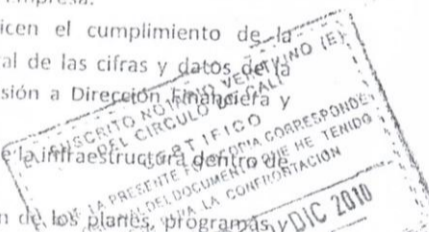 icen el cumplimiento de la
al de las cifras y datos de la
sión a Dirección Financiera y
e la infraestructura dentro de
n de los planes, programas, y
SCRITO NOTARIO VEINTIUNO (E)
DEL CIRCULO DE CALI
CERTIFICO
LA PRESENTE FOTOCOPIA CORRESPONDE
DEL DOCUMENTO QUE HE TENIDO
LA CONFRONTACION
DIC 2010